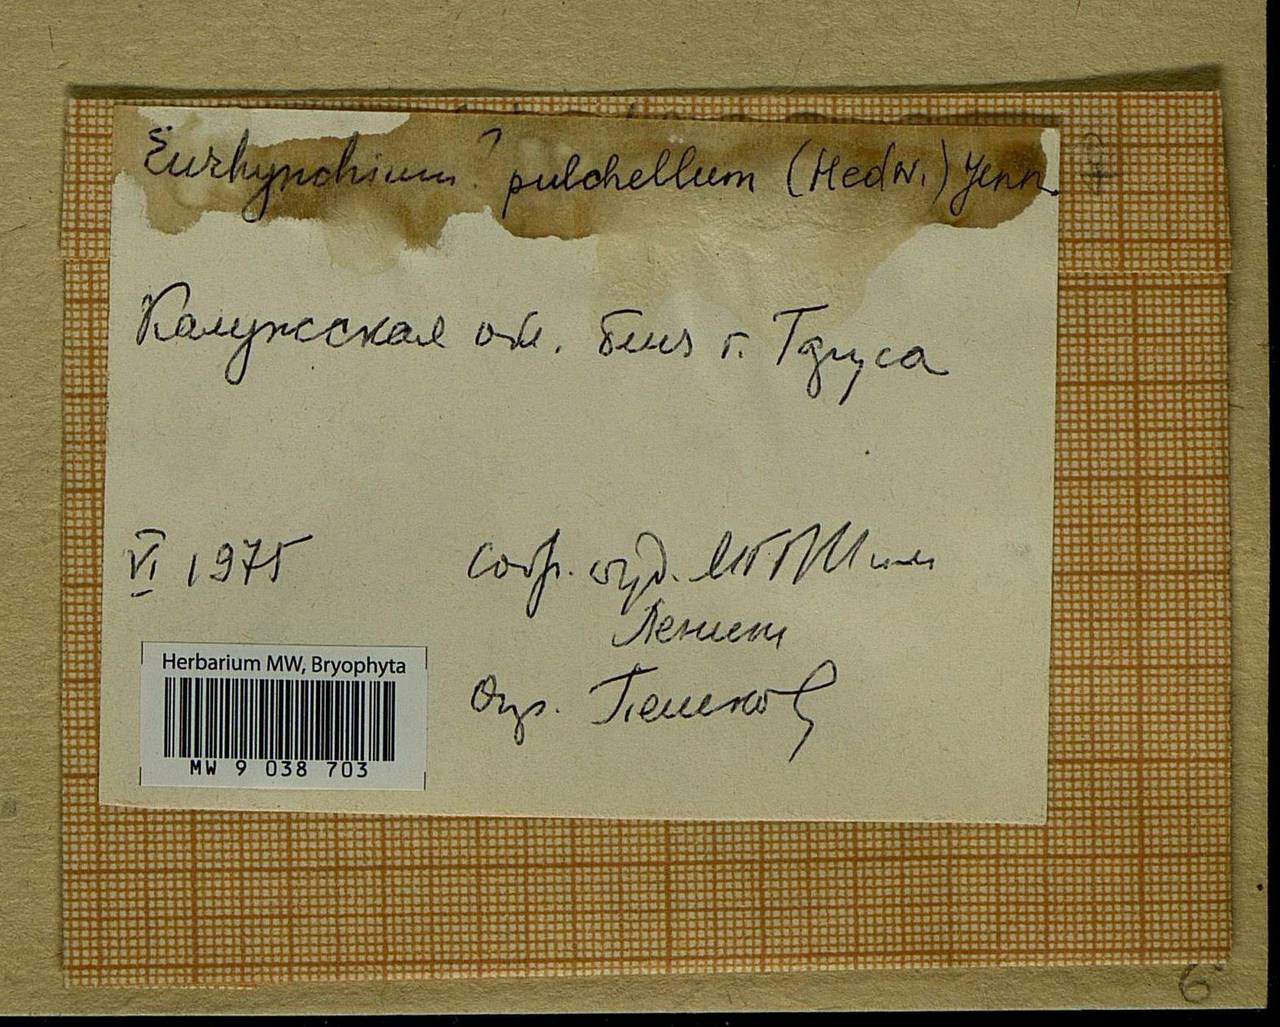 Eurhynchium ? pulchellum (Hedw.) Jenn.
Калужская обл. близ г. Таруса
VI 1975
собр. студ. МГПИ им
Ленина
Опр.
Herbarium MW, Bryophyta
MW 9 038 703
6